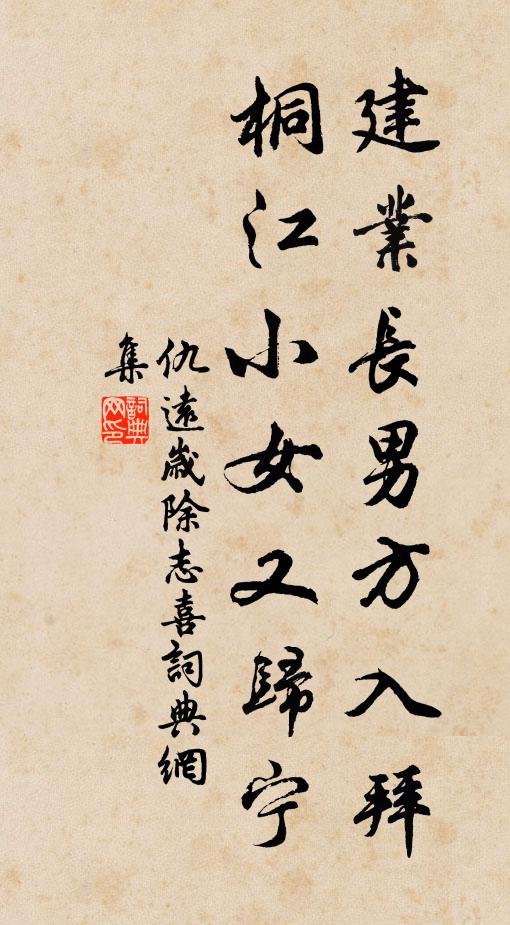 建業長男方入拜
桐江小女又歸宁
仇遠歲除志喜詞典網
集
詞典
网印